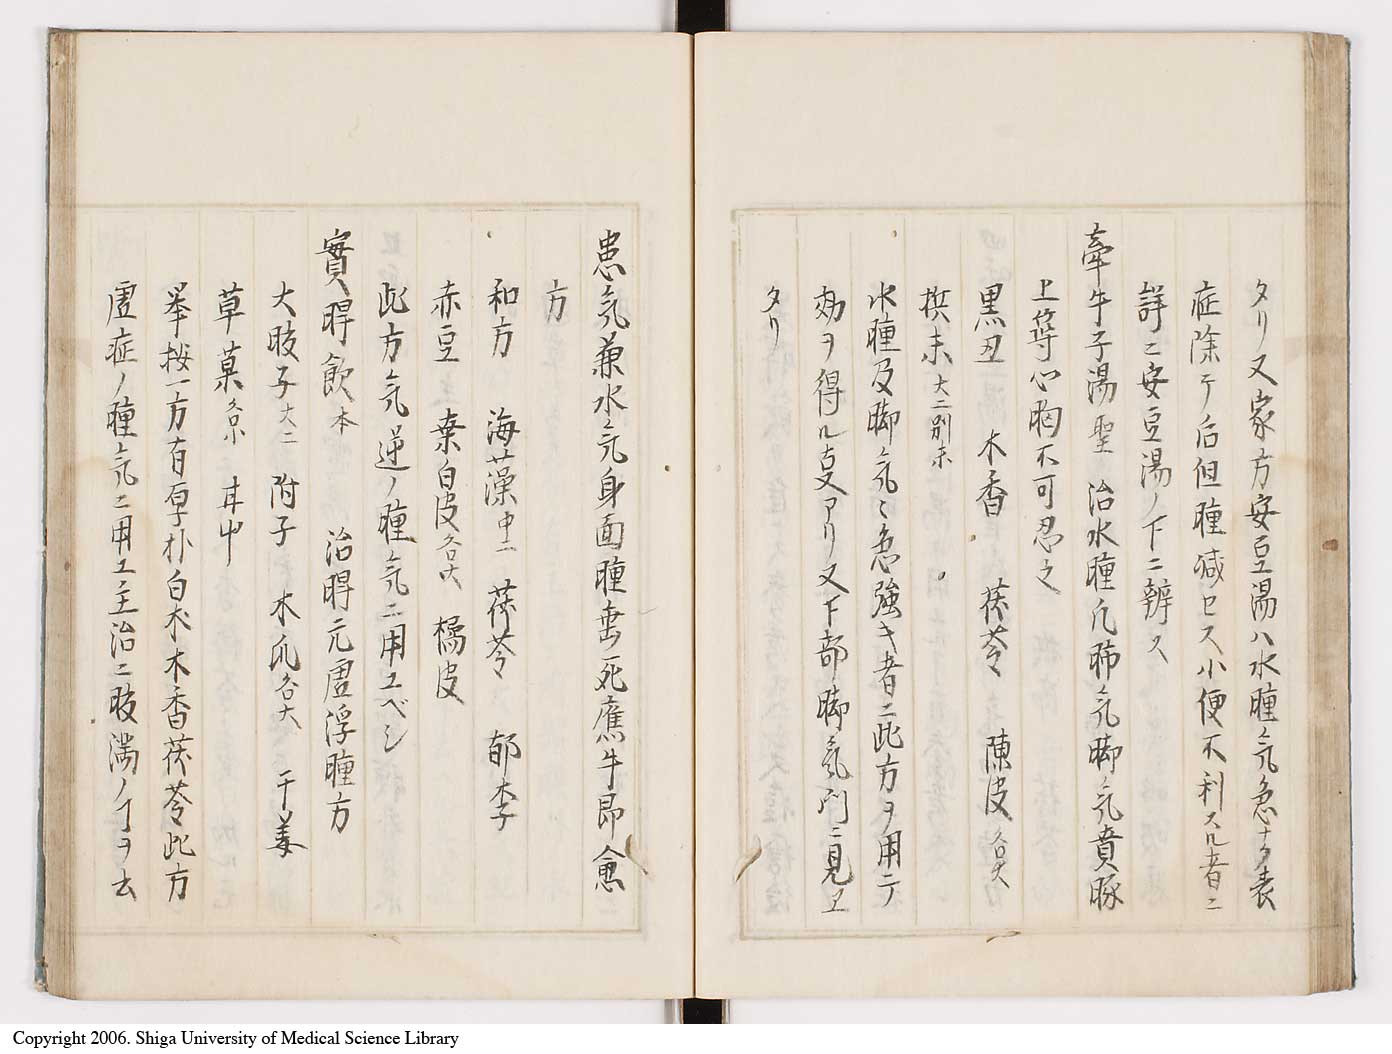 タリ又家方安豆湯ハ水腫気急ナク表
症除テ后但腫减セス小便不利スル者ニ
詳ニ安豆湯ノ下ニ辨ス
牽牛子湯聖 治水腫凡肺気脚気賁豚
上筭心胸不可忍之
黒丑 木香 茯苓 陳皮各大
梹末大二別末
水腫及脚気ミ急強キ者ニ此方ヲ用テ
効ヲ得ル叓アリ又下部脚気門ニ見エ
タリ
患気兼水気身面腫垂死應牛昂愈
方
和方 海藻中二 茯苓 郁李
赤豆 桒白皮各大 橘皮
此方気逆ノ腫気ニ用ユベシ
實脾飲本 治脾元虚浮腫方
大腹子大二 附子 木爪各大 干姜
草菓各小 甘中
挙按一方有厚朴白朮木香茯苓此方
虚症ノ腫気ニ用ユ主治ニ腹満ノヿヲ云